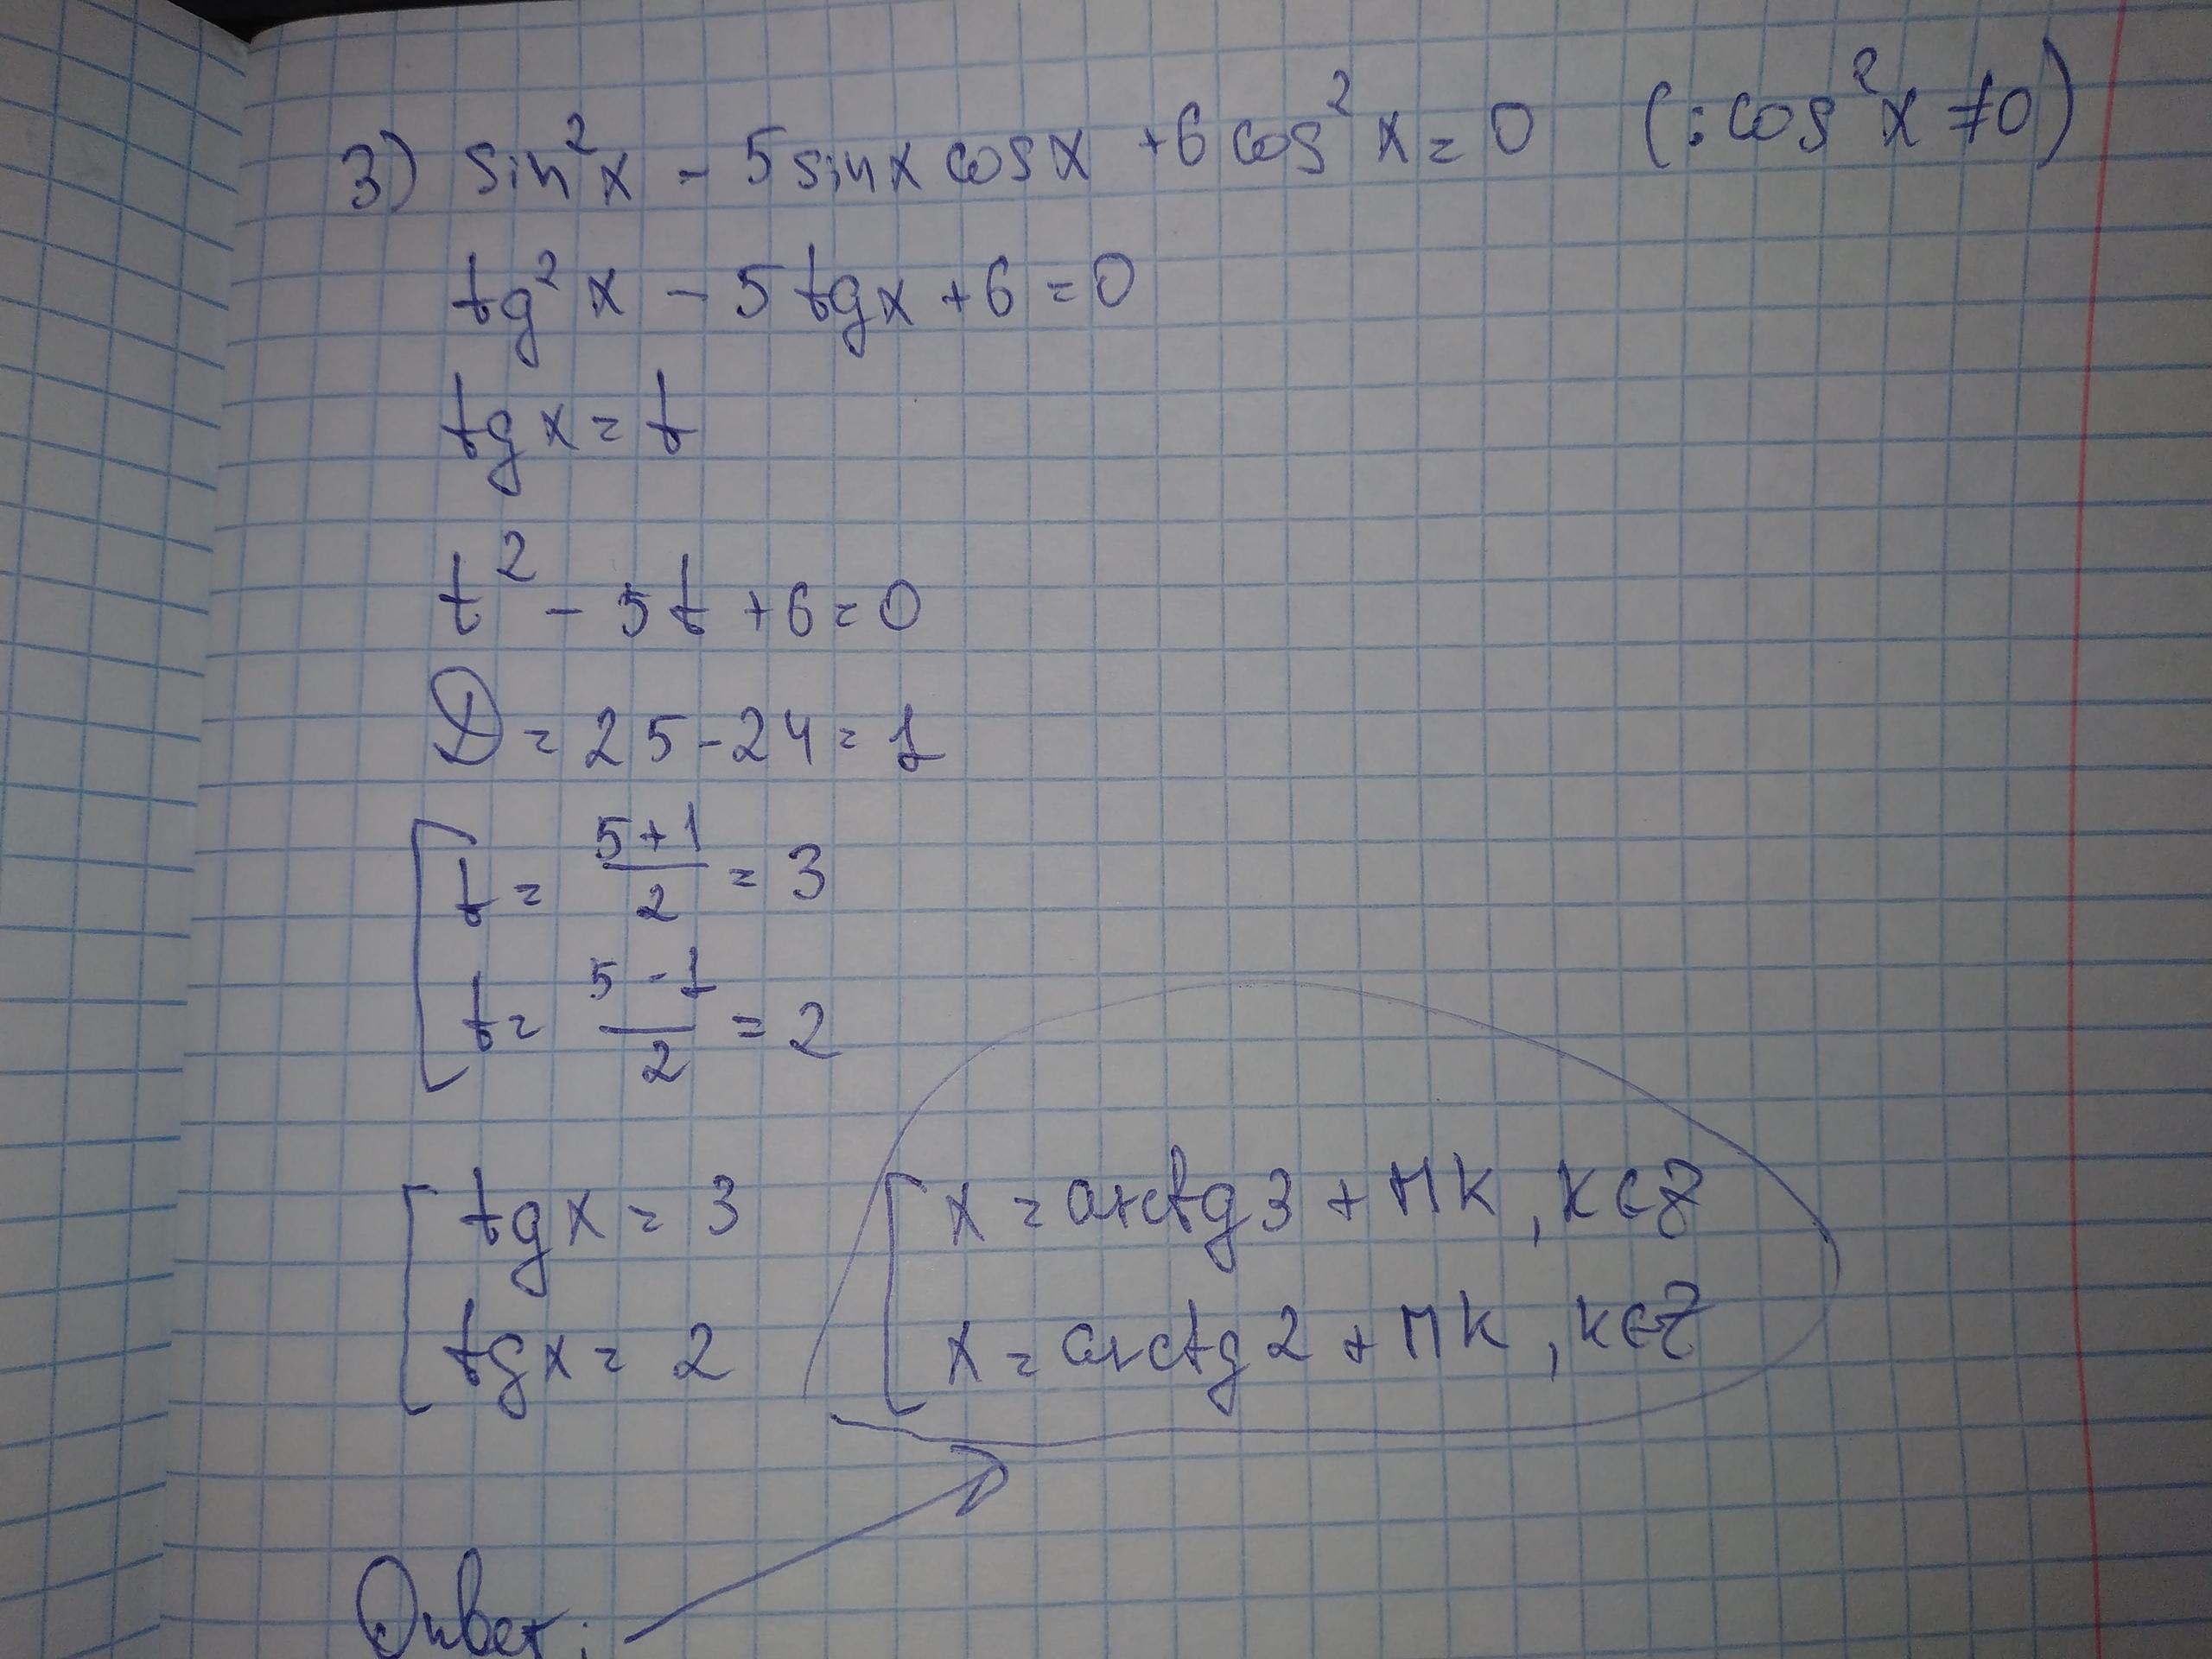 3) sin²x - 5 sin x cos x + 6 cos²x = 0 (: cos²x ≠ 0)
tg²x - 5 tg x + 6 = 0
tg x = t
t² - 5t + 6 = 0
D = 25 - 24 = 1
t = (5+1)/2 = 3
t = (5-1)/2 = 2
tg x = 3 x = arctg 3 + πk, k∈Z
tg x = 2 x = arctg 2 + πk, k∈Z
Ответ: